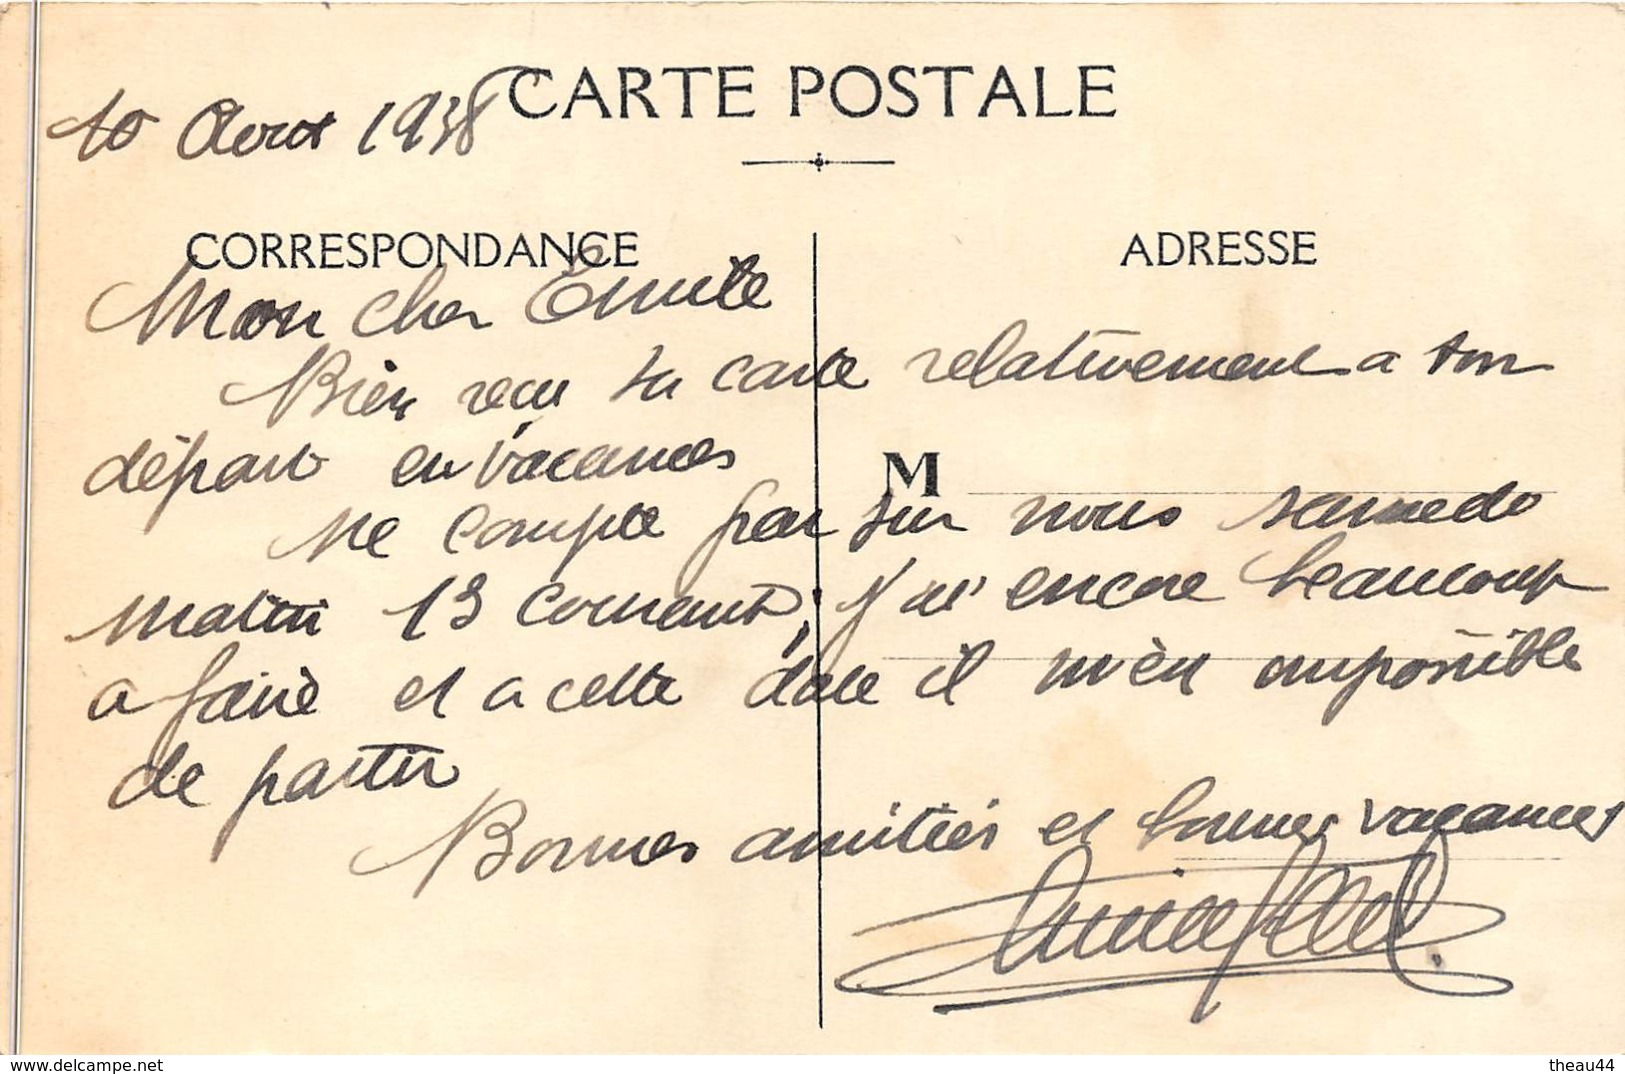 CARTE POSTALE
10 Aout 1938
CORRESPONDANCE
ADRESSE
Mon cher Emile
Bien reçu ta carte relativement a ton
départ en vacances
M
Ne compte pas sur nous samedi
matin 13 courant, j'ai encore beaucoup
a faire et a cette date il m'est impossible
de partir
Bonnes amitiés et bonnes vacances
www.delcampe.net
theau44